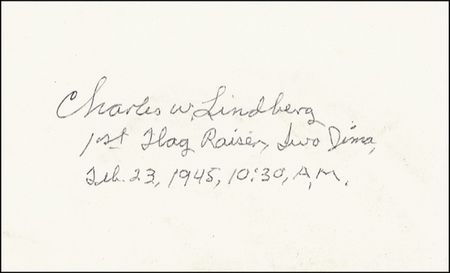 Charles W. Lindberg
1st Flag Raiser, Iwo Jima,
Feb. 23, 1945, 10:30, A.M.